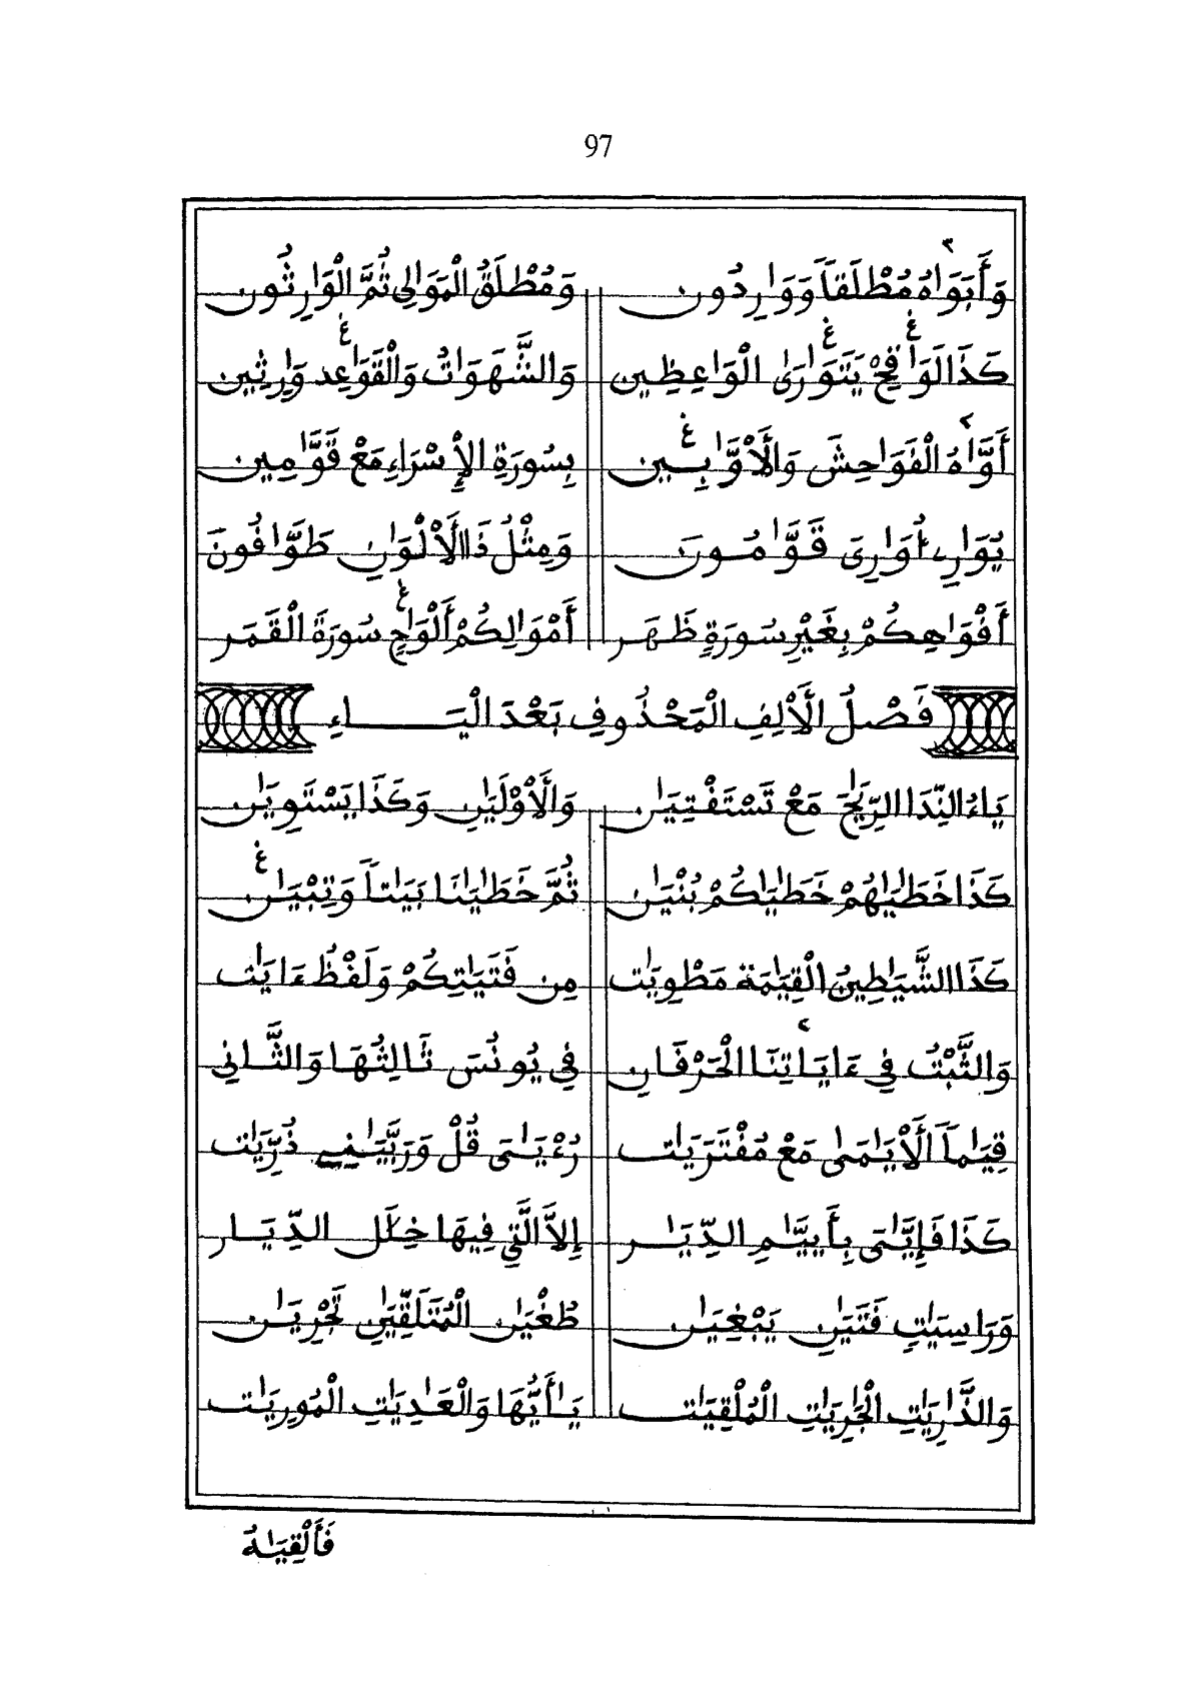 97
وَأَبَوَاهُ مُطْلَقاً وَوَارِدُونِ وَمُطْلَقُ الْمَوَالِي ثُمَّ الْوَارِثُونِ
كَذَا لَوَاقِحْ يَتَوَارَىٰ الْوَاعِظِينِ وَالشَّهَوَاتُ وَالْقَوَاعِدِ وَارِثِينِ
أَوَّاهُ الْفَوَاحِشَ وَالْأَوَّابِينِ بِسُورَةِ الْإِسْرَاءِ مَعْ قَوَّامِينِ
يُوَارِ، أُوَارِيَ قَوَّامُونَ وَمِثْلُ ذَا الْأَلْوَانِ طَوَّافُونَ
أَفْوَاهِكُمْ بِغَيْرِ سُورَةٍ ظَهَر أَمْوَالِكُمْ أَلْوَاحٍ سُورَةَ الْقَمَر
فَصْلُ الْأَلِفِ الْمَحْذُوفِ بَعْدَ الْيَاءِ
يَاءُ النِّدَا الرِّيَٰحَ مَعْ تَسْتَفْتِيَٰنِ وَالْأَوْلَيَٰنِ وَكَذَا يَسْتَوِيَٰنِ
كَذَا خَطَٰيَٰهُمْ خَطَٰيَٰكُمْ بُنْيَٰنِ ثُمَّ خَطَٰيَٰنَا بَيَٰتاً وَتِبْيَٰنِ
كَذَا الشَّيَٰطِينُ الْقِيَٰمَة مَطْوِيَّٰت مِن فَتَيَٰتِكُمْ وَلَفْظُ ءَايَٰت
وَالثَّبْتُ فِي ءَايَاتِنَا الْحَرْفَانِ فِي يُونُسَ ثَالِثُهَا وَالثَّانِي
قِيَٰماً الْأَيَٰمَىٰ مَعْ مُفْتَرَيَٰت رُءْيَٰىَ قُلْ وَرَبَّيَٰنِي ذُرِّيَّٰت
كَذَا فَإِيَّٰىَ بِأَيَّٰمِ الدِّيَٰر إِلاَّ الَّتِي فِيهَا خِلَٰلَ الدِّيَار
وَرَاسِيَٰتٍ فَتَيَٰنِ يَبْغِيَٰنِ طُغْيَٰن الْمُتَلَقِّيَٰنِ تَجْرِيَٰنِ
وَالذَّارِيَٰتِ الْجَٰرِيَٰتِ الْمُلْقِيَٰت يَٰأَيُّهَا وَالْعَٰدِيَٰتِ الْمُورِيَٰت
فَأَلْقِيَٰهُ